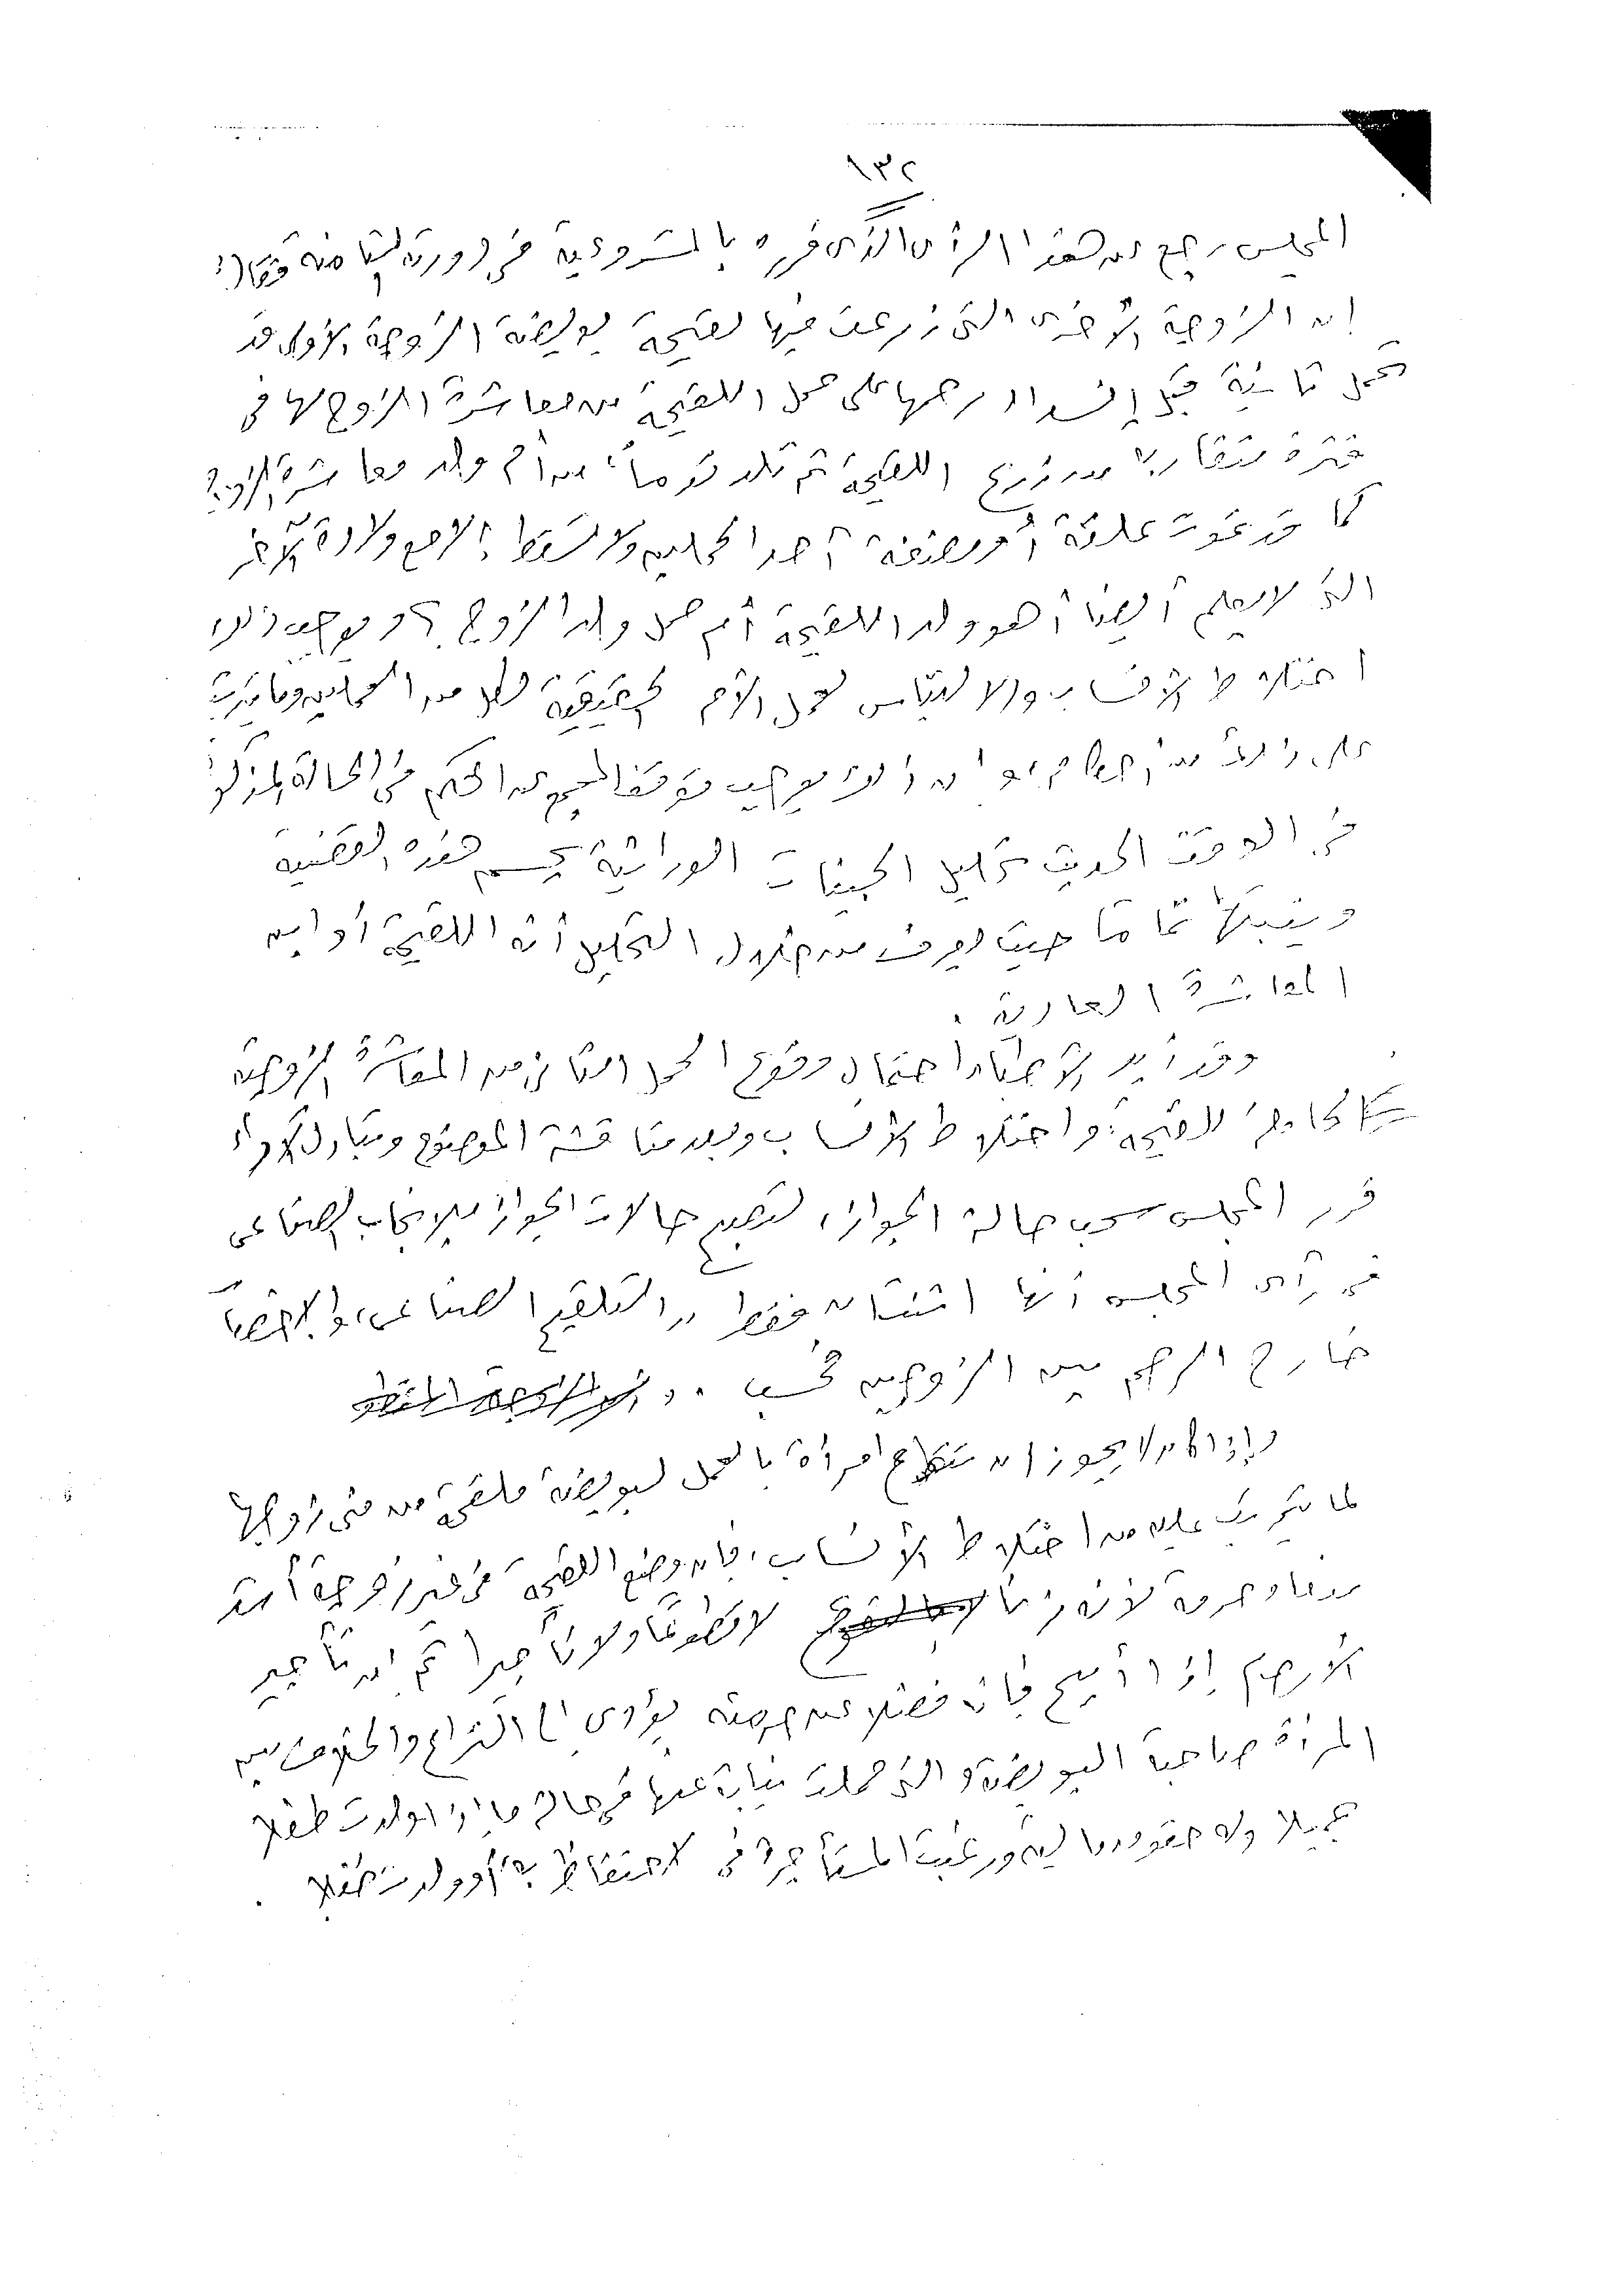 ١٣٢
المجلس رجع عن هذا الرأى الذى قرره بالمشروعية فى دورته الثامنة فقال:
إن الزوجة الأخرى التى زرعت فيها لقيحة بويضة الزوجة الأولى قد
تحمل ثانية قبل إنسداد رحمها على حمل اللقيحة من معاشرة الزوج لها فى
فترة متقاربة مع زرع اللقيحة ثم تلد توأماً، من أم ولد معاشرة الزوج؟
كما قد تموت علقة أو مضغة أحد الحملين ولا تسقط إلا مع ولادة الآخر
الذى لا يعلم أيضا أهو ولد اللقيحة أم حمل ولد الزوج؟ ويوجب ذلك
اختلاط الأنساب والالتباس لحمل الأم الحقيقية لكل من الحملين وما يترتب
على ذلك من أحكام، وإن ذلك يوجب توقف المجمع عن الحكم فى الحالة المذكورة
فى الوقت الحديث تحليل الجينات الوراثية يحسم هذه القضية
تماما حيث يعرف من خلال التحليل أنه اللقيحة أو ابن
المعاشرة العادية .
وقد أيد الأطباء احتمال وقوع الحمل الثانى من المعاشرة الزوجية
للقيحة، واختلاط الأنساب وبعد مناقشة الموضوع وتبادل الآراء
قرر المجلس سحب حالة الجواز، لتصبح حالات الجواز للإنجاب الصناعى
فى رأى المجلس أنها اثنتان فقط "التلقيح الصناعى، والإخصاب
خارج الرحم بين الزوجين فحسب ..
وإذا كان لا يجوز أن تتطوع امرأة بالحمل لبويضة ملقحة من منى زوجها
لما يترتب عليه من اختلاط الأنساب، فإن وضع اللقيحة فى غير زوجة أشد
منعا وحرمة لأنه لا تطوعا ولا تأجيرا ثم إن تأجير
الأرحام إذا أبيح فإنه فضلا عن حرمته يؤدى إلى النزاع والخلاف بين
المرأة صاحبة البويضة والتى حملت نيابة عنها فى حالة ما إذا ولدت طفلا
جميلا وله حقوق مالية ورغبت المستأجرة فى الاحتفاظ به أو ولدت طفلا .